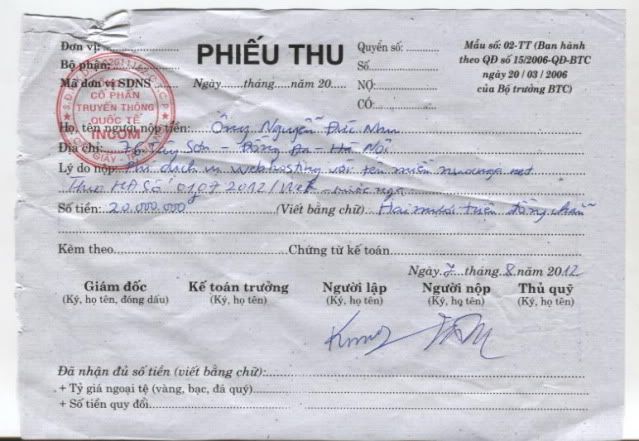 Đơn vị:
Bộ phận:
Mã đơn vị SDNS
PHIẾU THU
Ngày......tháng......năm 20......
Quyển số:
Số
NỢ:
CÓ:
Mẫu số: 02-TT (Ban hành
theo QĐ số 15/2006-QĐ-BTC
ngày 20 / 03 / 2006
của Bộ trưởng BTC)
CỔ PHẦN
TRUYỀN THÔNG
QUỐC TẾ
INCOM
CẦU GIẤY
Họ, tên người nộp tiền: Ông Nguyễn Đức
Địa chỉ: 76 Tây Sơn - Đống Đa - Hà Nội
Lý do nộp: Phí dịch vụ webhosting với tên miền nuocnga.net
Theo HĐ số 0107 2012/
Số tiền: 20.000.000 (Viết bằng chữ) Hai mươi triệu đồng chẵn
Kèm theo Chứng từ kế toán.
Ngày 7 tháng 8 năm 2012
Giám đốc Kế toán trưởng Người lập Người nộp Thủ quỹ
(Ký, họ tên, đóng dấu) (Ký, họ tên) (Ký, họ tên) (Ký, họ tên) (Ký, họ tên)
Đã nhận đủ số tiền (viết bằng chữ):
+ Tỷ giá ngoại tệ (vàng, bạc, đá quý)
+ Số tiền quy đổi